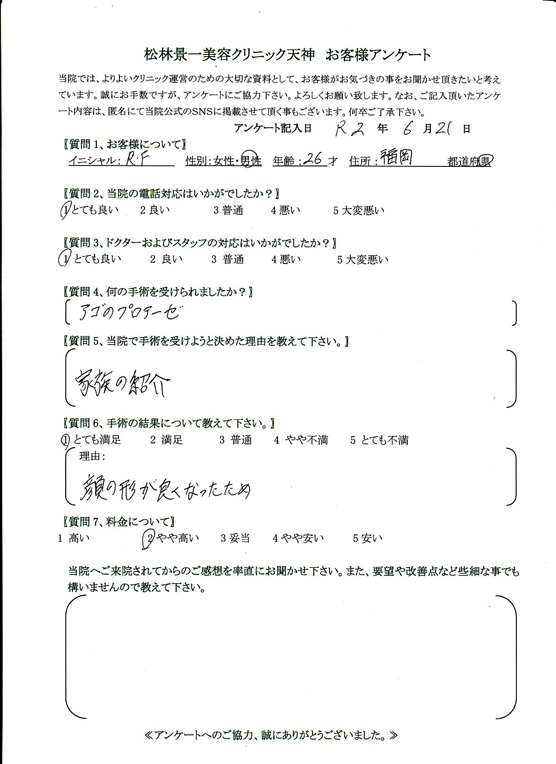 松林景一美容クリニック天神　お客様アンケート
当院では、よりよいクリニック運営のための大切な資料として、お客様がお気づきの事をお聞かせ頂きたいと考え
ています。誠にお手数ですが、アンケートにご協力下さい。よろしくお願い致します。なお、ご記入頂いたアンケ
ート内容は、匿名にて当院公式のSNSに掲載させて頂く事もございます。何卒ご了承下さい。
アンケート記入日　R2 年 6 月 21 日
〖質問1、お客様について〗
イニシャル：R.F　性別：女性・男性　年齢：26 才　住所：福岡　都道府県
〖質問2、当院の電話対応はいかがでしたか？〗
1とても良い　2 良い　3 普通　4 悪い　5 大変悪い
〖質問3、ドクターおよびスタッフの対応はいかがでしたか？〗
1とても良い　2 良い　3 普通　4 悪い　5 大変悪い
〖質問4、何の手術を受けられましたか？〗
アゴのプロテーゼ
〖質問5、当院で手術を受けようと決めた理由を教えて下さい。〗
家族の紹介
〖質問6、手術の結果について教えて下さい。〗
1とても満足　2 満足　3 普通　4 やや不満　5 とても不満
理由：
顔の形が良くなったため
〖質問7、料金について〗
1 高い　2やや高い　3 妥当　4 やや安い　5 安い
当院へご来院されてからのご感想を率直にお聞かせ下さい。また、要望や改善点など些細な事でも
構いませんので教えて下さい。
≪アンケートへのご協力、誠にありがとうございました。≫